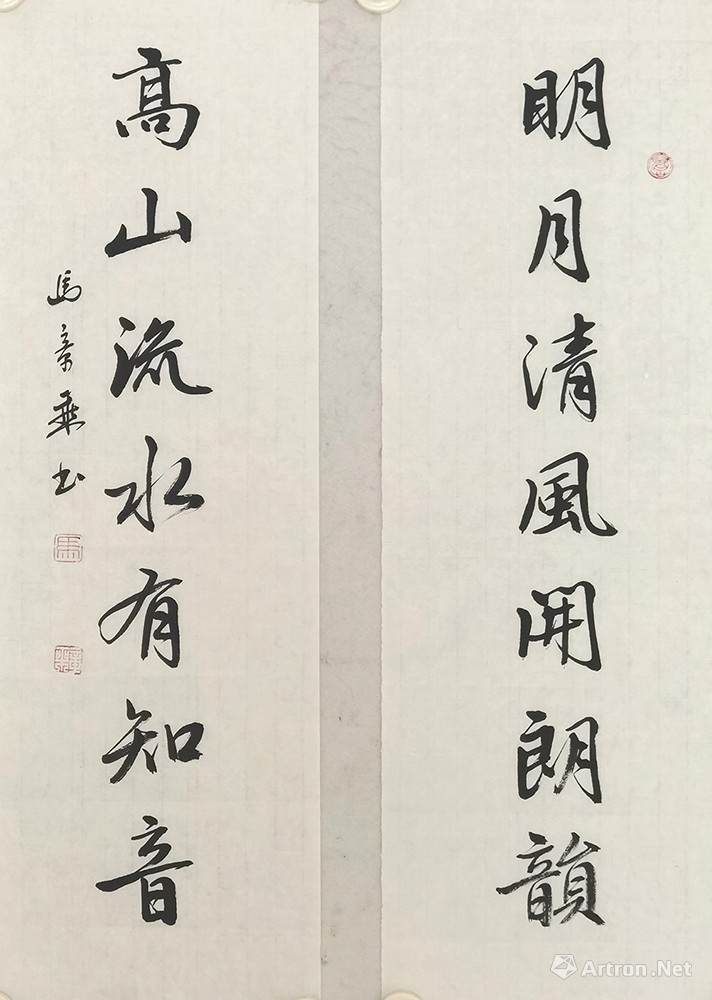 明月清風開朗韻
高山流水有知音
馬章乘书
Artron.Net